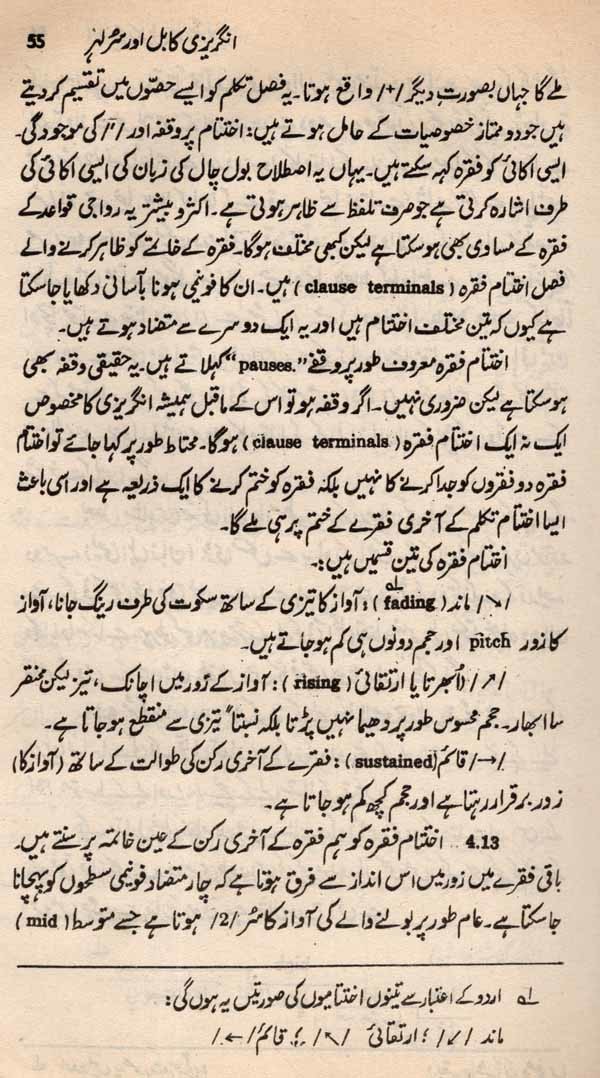 انگریزی کا بل اور سُر لہر 55
ملے گا جہاں بصورت دیگر /+/ واقع ہوتا۔ یہ فصل تکلم کو ایسے حصّوں میں تقسیم کر دیتے
ہیں جو دو ممتاز خصوصیات کے حامل ہوتے ہیں: اختتام پر وقفہ اور /ˊ/ کی موجودگی۔
ایسی اکائی کو فقرہ کہہ سکتے ہیں۔ یہاں یہ اصطلاح بول چال کی زبان کی ایسی اکائی کی
طرف اشارہ کرتی ہے جو صرف تلفظ سے ظاہر ہوتی ہے۔ اکثر و بیشتر یہ رواجی قواعد کے
فقرہ کے مساوی بھی ہو سکتا ہے لیکن کبھی مختلف ہوگا۔ فقرہ کے خاتمے کو ظاہر کرنے والے
فصل اختتام فقرہ (clause terminals) ہیں۔ ان کا فونیمی ہونا بآسانی دکھایا جا سکتا
ہے کیوں کہ تین مختلف اختتام ہیں اور یہ ایک دوسرے سے متضاد ہوتے ہیں۔
اختتام فقرہ معروف طور پر وقفے “pauses.” کہلاتے ہیں۔ یہ حقیقی وقفہ بھی
ہو سکتا ہے لیکن ضروری نہیں۔ اگر وقفہ ہو تو اس کے ماقبل ہمیشہ انگریزی کا مخصوص
ایک نہ ایک اختتام فقرہ (clause terminals) ہوگا۔ محتاط طور پر کہا جائے تو اختتام
فقرہ دو فقروں کو جدا کرنے کا نہیں بلکہ فقرہ کو ختم کرنے کا ایک ذریعہ ہے اور اسی باعث
ایسا اختتام تکلم کے آخری فقرے کے ختم پر ہی ملے گا۔
اختتام فقرہ کی تین قسمیں ہیں:۔
/↘/ ماند (fading)لہ: آواز کا تیزی کے ساتھ سکوت کی طرف رینگ جانا، آواز
کا زور pitch اور حجم دونوں ہی کم ہو جاتے ہیں۔
/↗/ (اُبھرتا یا ارتقائی (rising): آواز کے زور میں اچانک، تیز لیکن مختصر
سا ابھار۔ حجم محسوس طور پر دھیما نہیں پڑتا بلکہ نسبتاً تیزی سے منقطع ہو جاتا ہے۔
/→/ قائم (sustained): فقرے کے آخری رکن کی طوالت کے ساتھ (آواز کا)
زور برقرار رہتا ہے اور حجم کچھ کم ہو جاتا ہے۔
4.13 اختتام فقرہ کو ہم فقرہ کے آخری رکن کے عین خاتمہ پر سنتے ہیں۔
باقی فقرے میں زور میں اس انداز سے فرق ہوتا ہے کہ چار متضاد فونیمی سطحوں کو پہچانا
جا سکتا ہے۔ عام طور پر بولنے والے کی آواز کا سُر /2/ ہوتا ہے جسے متوسط (mid)
لہ اردو کے اعتبار سے تینوں اختتامیوں کی صورتیں یہ ہوں گی:
ماند /↙/ ؛ ارتقائی /↖/ ؛ قائم /←/